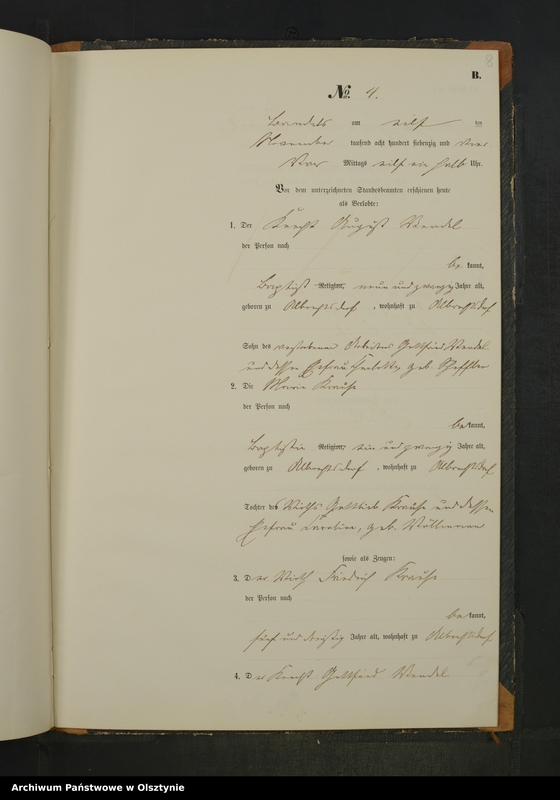 8
B.
No. 4.
am eilf ten
November tausend acht hundert siebenzig und vier
Vor Mittags eilf ein halb Uhr.
Vor dem unterzeichneten Standesbeamten erschienen heute
als Verlobte:
1. Der Knecht August Wendel
der Person nach
be kannt,
Baptist Religion, neun und zwanzig Jahre alt,
geboren zu Albrechtsdorf, wohnhaft zu Albrechtsdorf
Sohn des verstorbenen Arbeiters Gottfried Wendel
und dessen Ehefrau geb. Scheffler
2. Die Maria Krause
der Person nach
be kannt,
Baptistin Religion, ein und zwanzig Jahre alt,
geboren zu Albrechtsdorf, wohnhaft zu Albrechtsdorf
Tochter des Wirths Gottlieb Krause und dessen
Ehefrau Caroline, geb. Wöllmann
sowie als Zeugen:
3. Der Wirth Friedrich Krause
der Person nach
be kannt,
fünf und dreißig Jahre alt, wohnhaft zu Albrechtsdorf
4. Der Knecht Gottfried Wendel
Archiwum Państwowe w Olsztynie